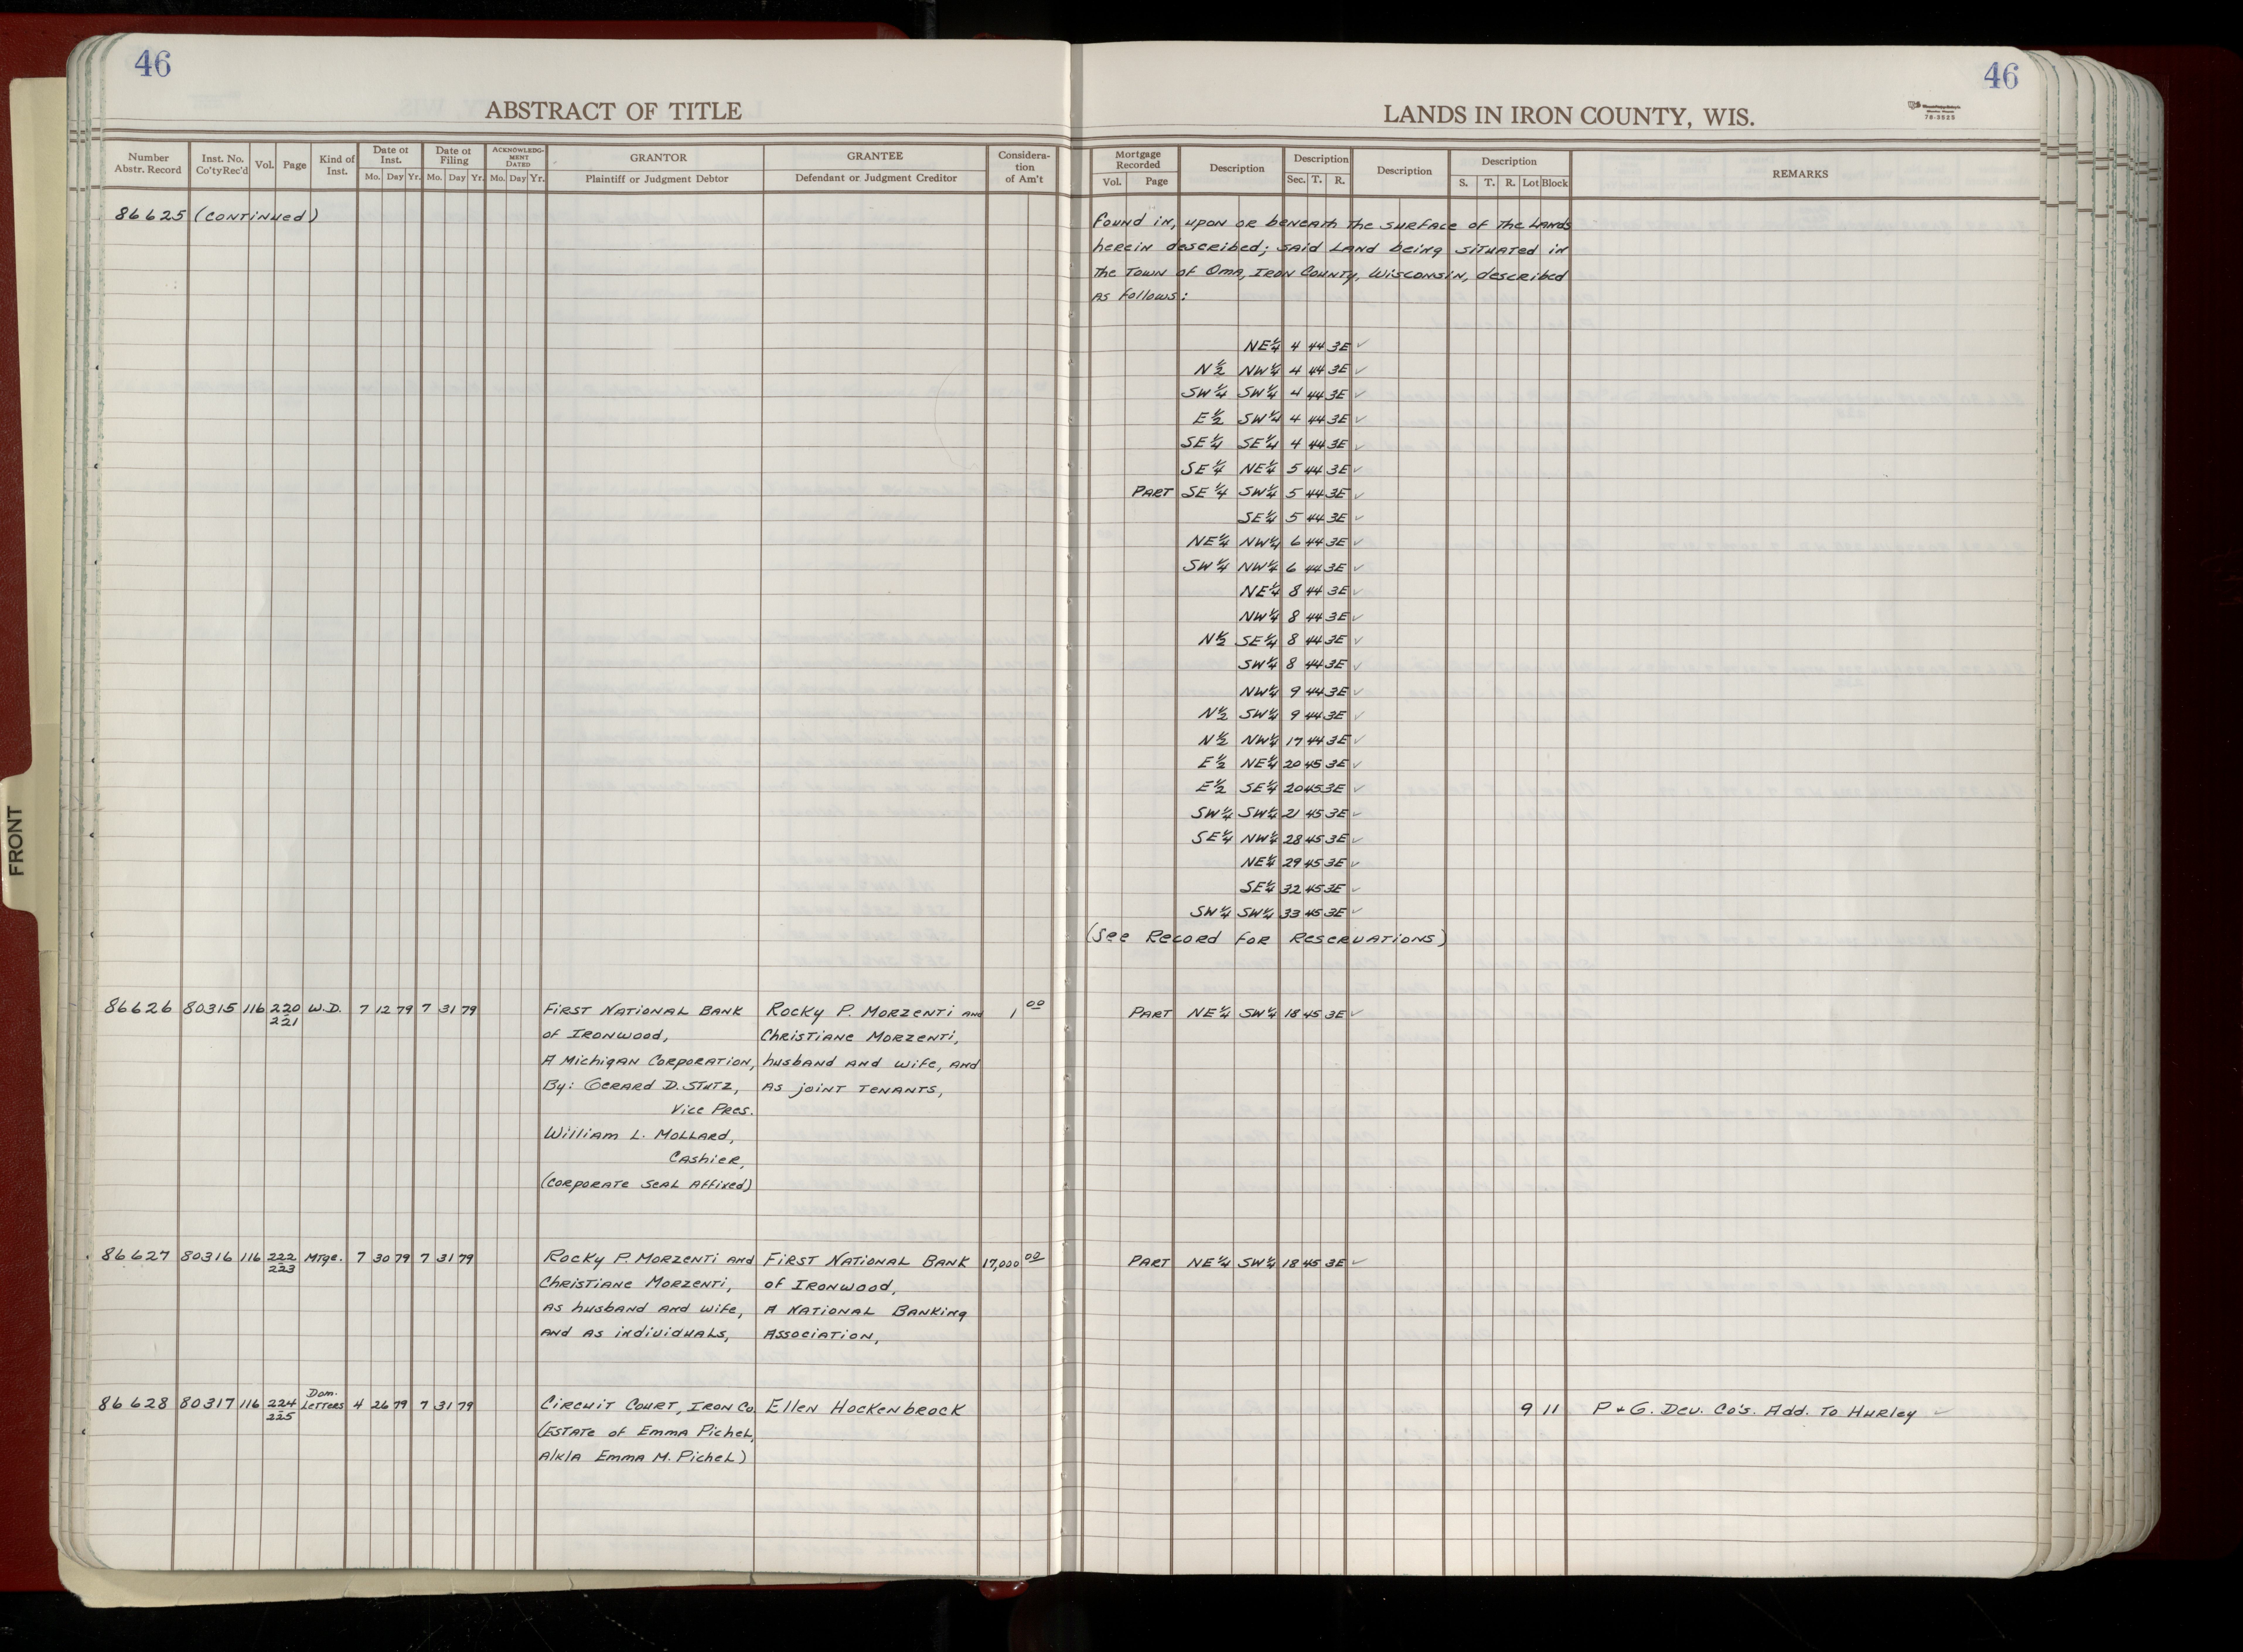 46
ABSTRACT OF TITLE
Number Abstr. Record Inst. No. Co'ty Rec'd Vol. Page Kind of Inst. Date of Inst. Mo. Day Yr. Date of Filing Mo. Day Yr. ACKNOWLEDG-MENT DATED Mo. Day Yr. GRANTOR Plaintiff or Judgment Debtor GRANTEE Defendant or Judgment Creditor Considera-tion of Am't
86625 (continued)
86626 80315 116 220-221 W.D. 7 12 79 7 31 79 First National Bank Rocky P. Morzenti and 1 00
of Ironwood, Christiane Morzenti,
A Michigan Corporation, husband and wife, and
By: Gerard D. Stutz, as joint tenants,
Vice Pres.
William L. Mollard,
Cashier,
(Corporate Seal Affixed)
86627 80316 116 222-223 Mtge. 7 30 79 7 31 79 Rocky P. Morzenti and First National Bank 17,000 00
Christiane Morzenti, of Ironwood,
as husband and wife, A National Banking
and as individuals, Association,
86628 80317 116 224-225 Dom. Letters 4 26 79 7 31 79 Circuit Court, Iron Co. Ellen Hockenbrock
(Estate of Emma Pichel,
A/k/a Emma M. Pichel)
46
LANDS IN IRON COUNTY, WIS.
78-3525
Mortgage Recorded Vol. Page Description Description Sec. T. R. Description Description S. T. R. Lot Block REMARKS
found in, upon or beneath the surface of the lands
herein described; said land being situated in
the Town of Oma, Iron County, Wisconsin, described
as follows:
NE¼ 4 44 3E ✓
N½ NW¼ 4 44 3E ✓
SW¼ SW¼ 4 44 3E ✓
E½ SW¼ 4 44 3E ✓
SE¼ SE¼ 4 44 3E ✓
SE¼ NE¼ 5 44 3E ✓
Part SE¼ SW¼ 5 44 3E ✓
SE¼ 5 44 3E ✓
NE¼ NW¼ 6 44 3E ✓
SW¼ NW¼ 6 44 3E ✓
NE¼ 8 44 3E ✓
NW¼ 8 44 3E ✓
N½ SE¼ 8 44 3E ✓
SW¼ 8 44 3E ✓
NW¼ 9 44 3E ✓
N½ SW¼ 9 44 3E ✓
N½ NW¼ 17 44 3E ✓
E½ NE¼ 20 45 3E ✓
E½ SE¼ 20 45 3E ✓
SW¼ SW¼ 21 45 3E ✓
SE¼ NW¼ 28 45 3E ✓
NE¼ 29 45 3E ✓
SE¼ 32 45 3E ✓
SW¼ SW¼ 33 45 3E ✓
(See Record for Reservations)
Part NE¼ SW¼ 18 45 3E ✓
Part NE¼ SW¼ 18 45 3E ✓
9 11 P & G. Dev. Co's. Add. to Hurley ✓
FRONT